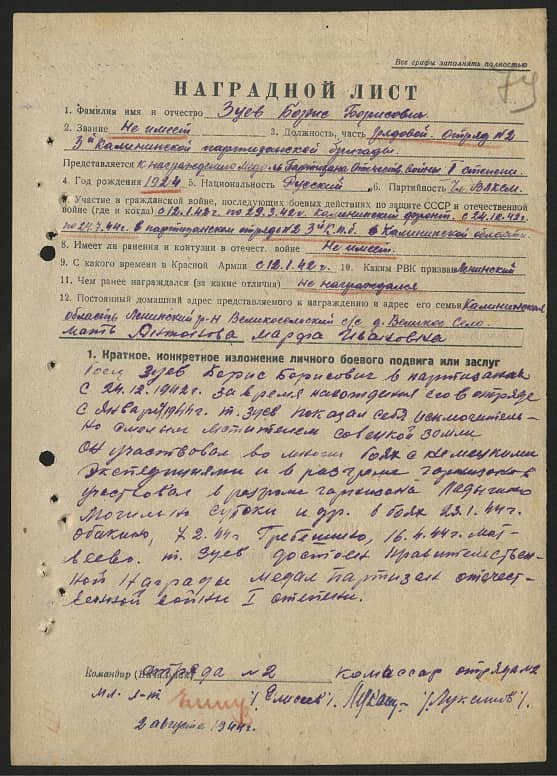 Все графы заполнять полностью
74
НАГРАДНОЙ ЛИСТ
1. Фамилия имя и отчество Зуев Борис Борисович
2. Звание Не имеет 3. Должность, часть рядовой. отряд №2
3й Калининской партизанской бригады.
Представляется к награждению медаль Партизана Отечеств. войны I степени.
4. Год рождения 1924 5. Национальность Русский 6. Партийность Чл. ВЛКСМ.
7. Участие в гражданской войне, последующих боевых действиях по защите СССР и отечественной
войне (где и когда) с 12.1.42г. по 29.3.42г. Калининский фронт. с 24.12.42г.
по 24.7.44г. в партизанском отряде №2 3й К.п.б. в Калининской области.
8. Имеет ли ранения и контузии в отечест. войне Не имеет.
9. С какого времени в Красной Армии с 12.1.42г. 10. Каким РВК призван Ленинский
11. Чем ранее награждался (за какие отличия) не награждался
12. Постоянный домашний адрес представляемого к награждению и адрес его семьи Калининская
область Ленинский р-н Великосельский с/с д. Великое Село.
мать Антонова Марфа Ивановна
1. Краткое, конкретное изложение личного боевого подвига или заслуг
Зуев Борис Борисович в партизанах
с 24.12.1942г. За время нахождения его в отряде
с января 1944г. т. Зуев показал себя исключитель-
но смелым мстителем совецкой земли
Он участвовал во многих боях с немецкими
экспедициями и в разгроме гарнизонов
участвовал в разгроме гарнизона Ладыгино
Могильно Сутоки и др. в боях 23.1.44г.
7.2.44г. Гребешно, 16.4.44г. Мат-
веево. т. Зуев достоен правительствен-
ной Награды медал Партизан отечест-
венной войны I степени.
Командир (Начальник) отряда №2 комиссар отряда №2
мл. л-т /Елисеев/. /Лукашов/.
2 августа 1944г.